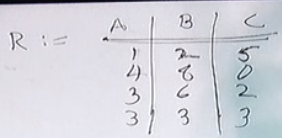 A B C
R :=
1 2 5
4 8 0
3 6 2
3 3 3